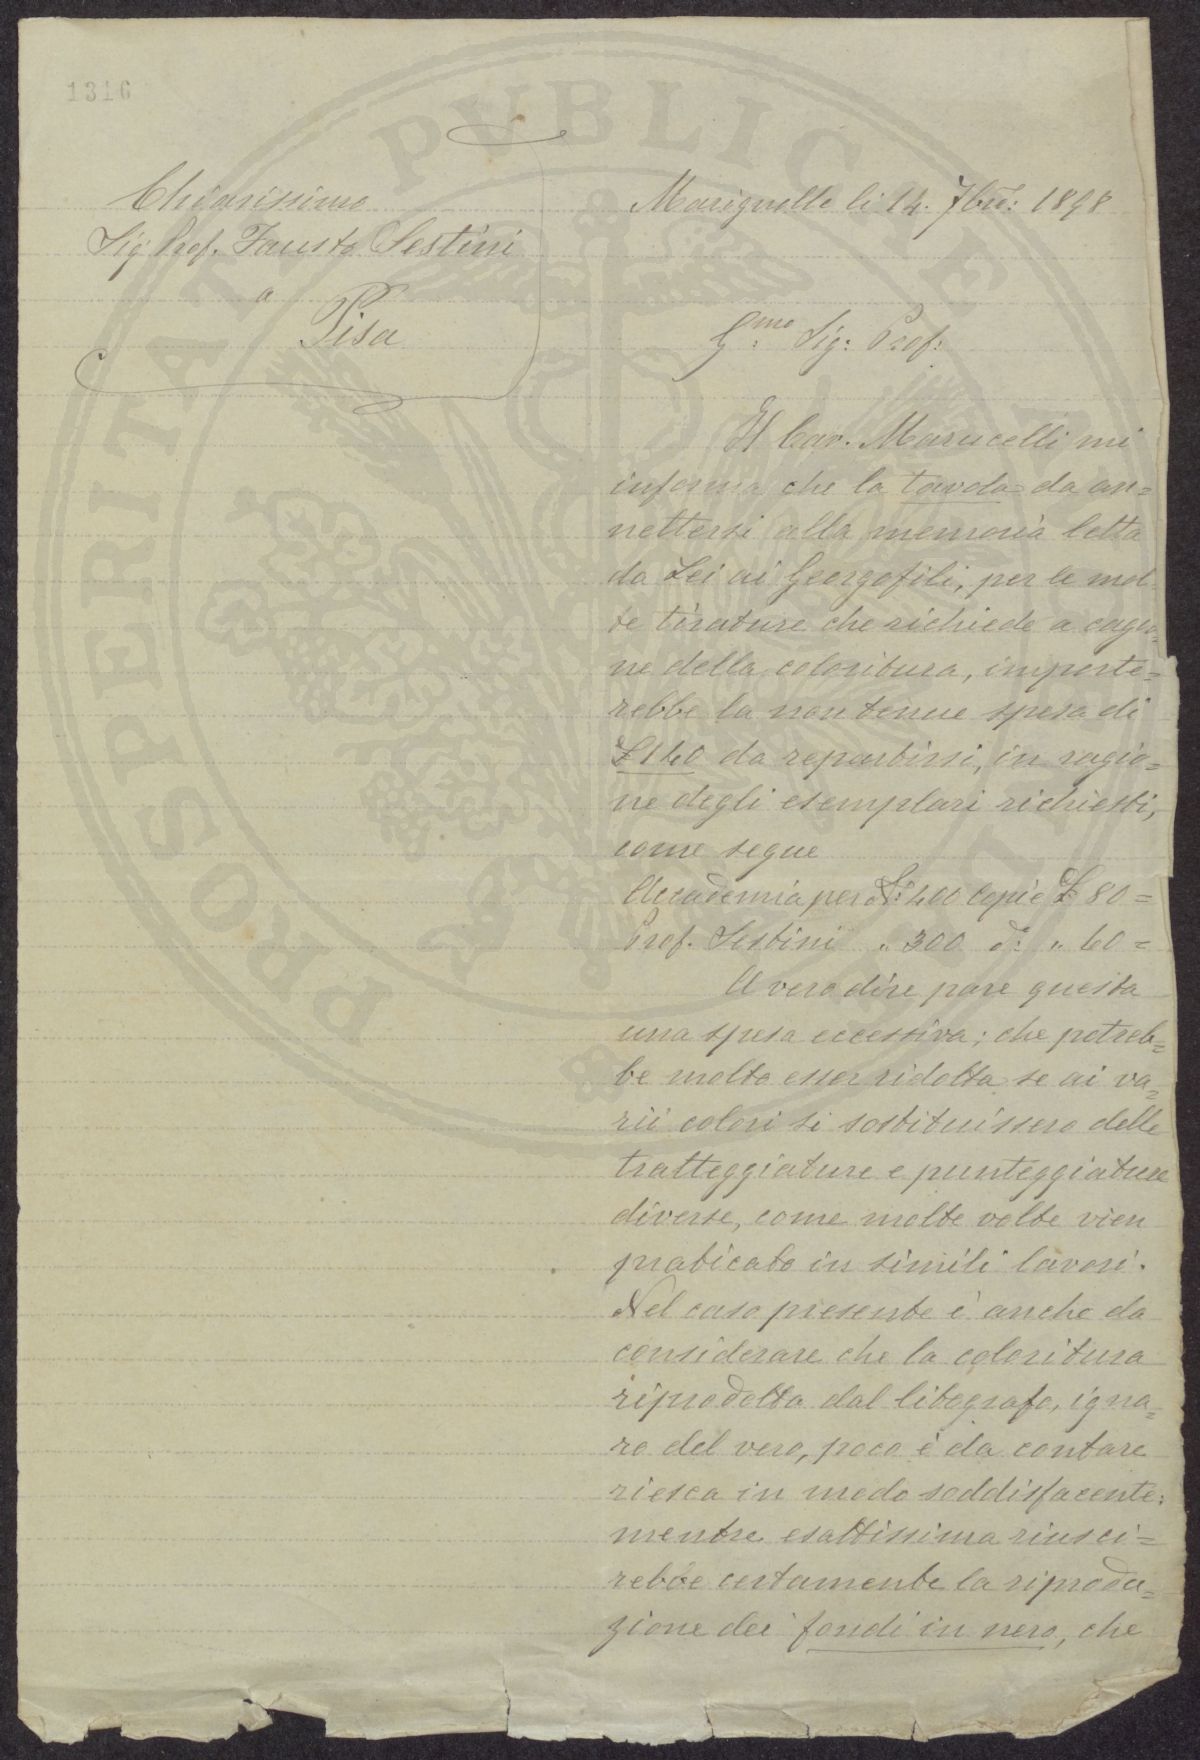 1316
Chiarissimo
Sig Prof. Fausto Sestini
a
Pisa
Marignolle li 14. 7bre: 1898
G.mo Sig: Prof:
Il Cav. Marucelli mi
informa che la tavola= da an=
nettersi alla memoria letta
da Lei ai Georgofili, per le mol
te tirature che richiede a cagio=
ne della coloritura, importe=
rebbe la non tenue spesa di
£ 140 da repartirsi, in ragio=
ne degli esemplari richiesti,
come segue
Accademia per N: 400 copie £ 80=
Prof. Sestini " 300 d: " 60=
A vero dire pare questa
una spesa eccessiva; che potreb=
be molto esser ridotta se ai va=
rii colori si sostituissero delle
tratteggiature e punteggiature
diverse, come molte volte vien
praticato in simili lavori.
Nel caso presente è anche da
considerare che la coloritura
riprodotta dal litografo, igna=
ro del vero, poco è da contare
riesca in modo soddisfacente:
mentre esattissima riusci=
rebbe certamente la riprodu=
zione dei fondi in nero, che
PROSPERITATI PVBLICAE AVGENDAE